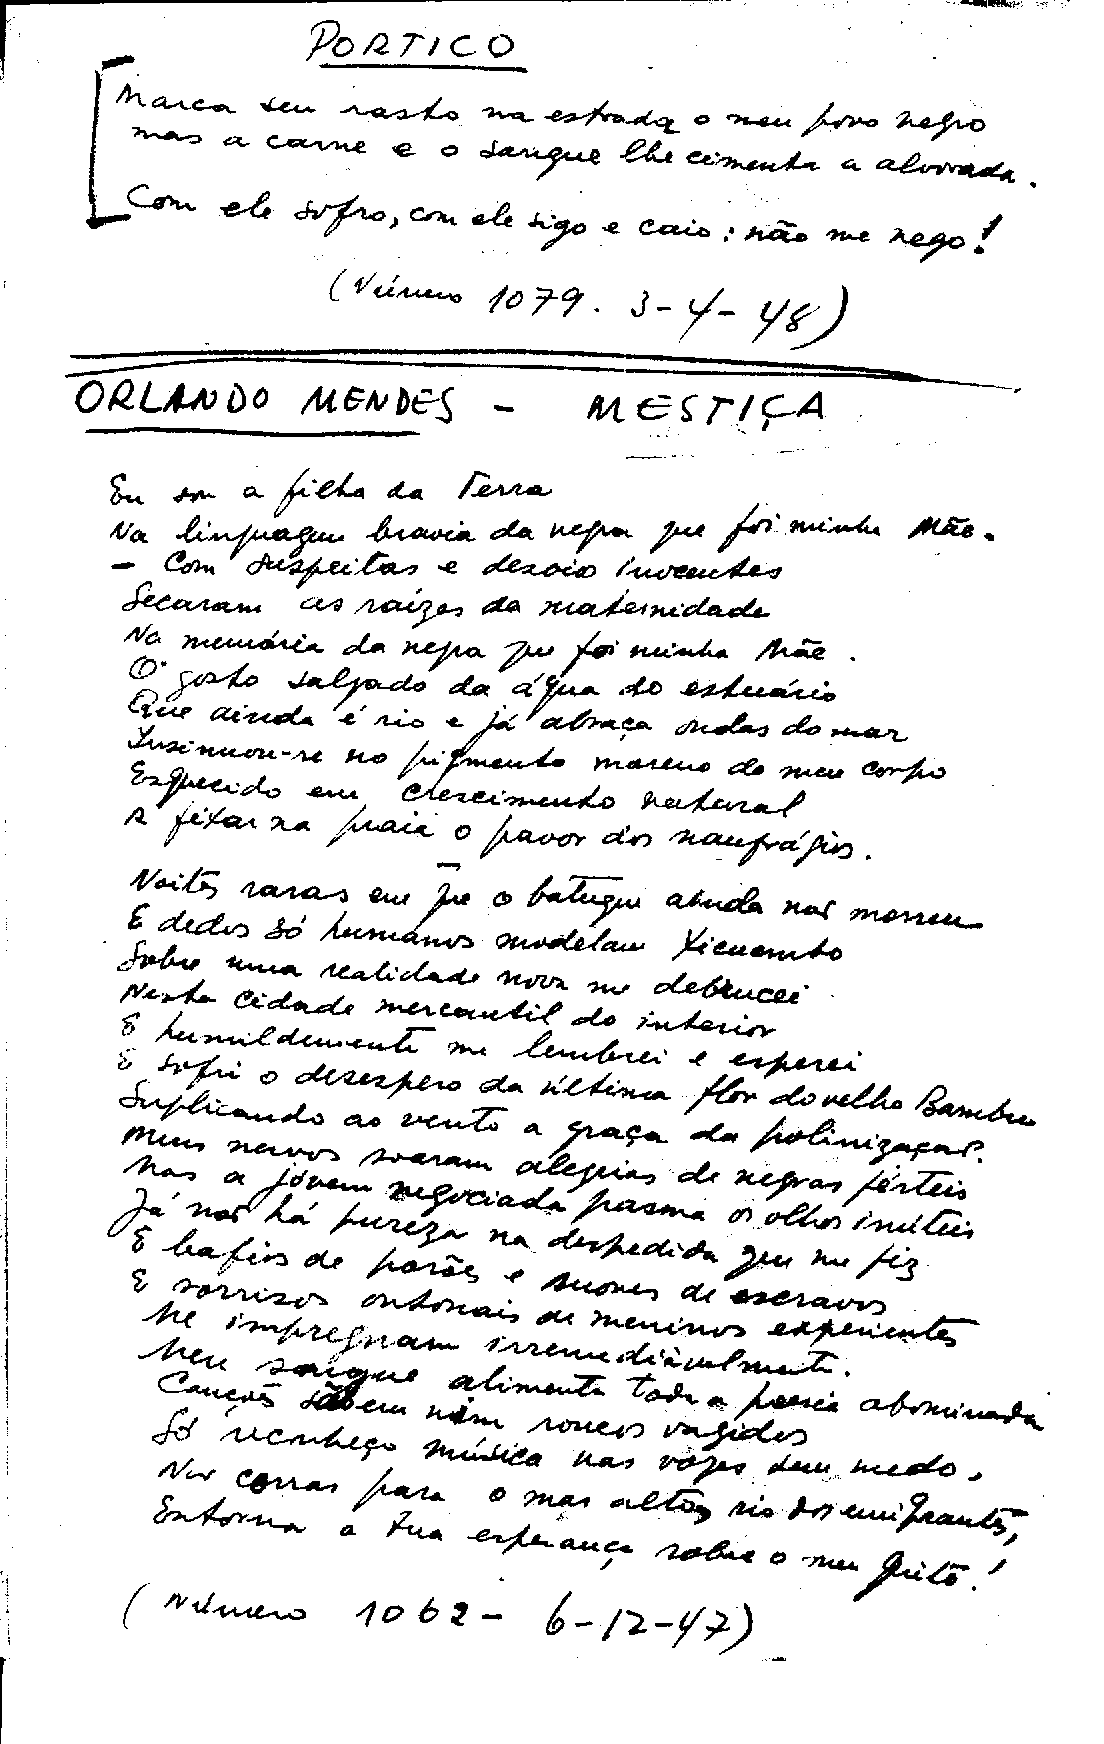 PORTICO
Marca seu rasto na estrada o meu povo negro
mas a carne e o sangue lhe cimenta a alvorada.
Com ele sofro, com ele sigo e caio: não me nego!
(Número 1079. 3-4-48)
ORLANDO MENDES - MESTIÇA
Eu sou a filha da Terra
Na linguagem bravia da negra que foi minha Mãe.
- Com suspeitas e desvio inocentes
Secaram as raízes da maternidade
Na memória da negra que foi minha Mãe.
O gosto salgado da água do estuário
Que ainda é rio e já abraça ondas do mar
Insinuou-se no pigmento moreno do meu corpo
Esquecido em crescimento natural
A fixar na praia o pavor dos naufrágios.
Noites raras em que o batuque ainda não morreu
E dedos só humanos modelam Xicuembo
Sobre uma realidade nova me debrucei
Nesta cidade mercantil do interior
E humildemente me lembrei e esperei
E sofri o desespero da última flor do velho Bambu
Suplicando ao vento a graça da polinização.
Meus nervos soaram alegrias de negras férteis
Mas a jovem negociada pasma os olhos inúteis
Já não há pureza na despedida que me fiz
E bafios de porões e suores de escravos
E sorrisos outonais de meninos experientes
Me impregnam irremediàvelmente.
Meu sangue alimenta toda a poesia abominada
Canções sabem num roucos vagidos
Só reconheço música nas vozes sem medo.
Não corras para o mar alto, rio dos emigrantes,
Entorna a tua esperança sobre o meu grito!
(Número 1062 - 6-12-47)